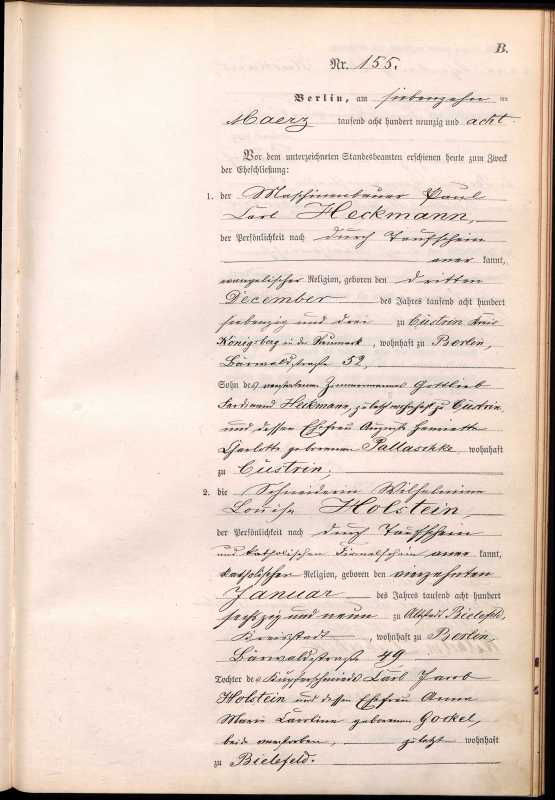 B.
Nr. 155.
Berlin, am siebenzehnten
Maerz tausend acht hundert neunzig und acht
Vor dem unterzeichneten Standesbeamten erschienen heute zum Zweck
der Eheschließung:
1. der Maschinenbauer Paul
Carl Heckmann,
der Persönlichkeit nach durch Taufschein
aner kannt,
evangelischer Religion, geboren den dritten
December des Jahres tausend acht hundert
siebenzig und drei zu Cüstrin Kreis
Königsberg in der Neumark, wohnhaft zu Berlin,
Bärwaldstraße 52,
Sohn des verstorbenen Zimmermannes Gottlieb
Ferdinand Heckmann, zuletzt wohnhaft zu Cüstrin,
und dessen Ehefrau Auguste Henriette
Charlotte geborenen Pallaschke, wohnhaft
zu Cüstrin;
2. die Schneiderin Wilhelmine
Louise Holstein,
der Persönlichkeit nach durch Taufschein
und katholischen Firmelschein aner kannt,
katholischer Religion, geboren den vierzehnten
Januar des Jahres tausend acht hundert
sechszig und neun zu Altstadt Bielefeld,
Kreisstadt, wohnhaft zu Berlin,
Bärwaldstraße 49
Tochter des Kupferschmieds Carl Jacob
Holstein und dessen Ehefrau Anna
Marie Caroline geborenen Gockel,
beide verstorben, zuletzt wohnhaft
zu Bielefeld.